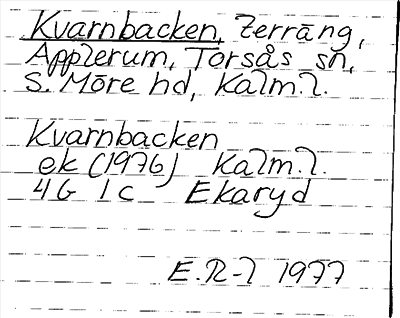 Kvarnbacken, terräng,
Applerum, Torsås sn,
S. Möre hd, Kalm.l.
Kvarnbacken
ek (1976) Kalm.l.
4G 1c Ekaryd
E.R-l 1977